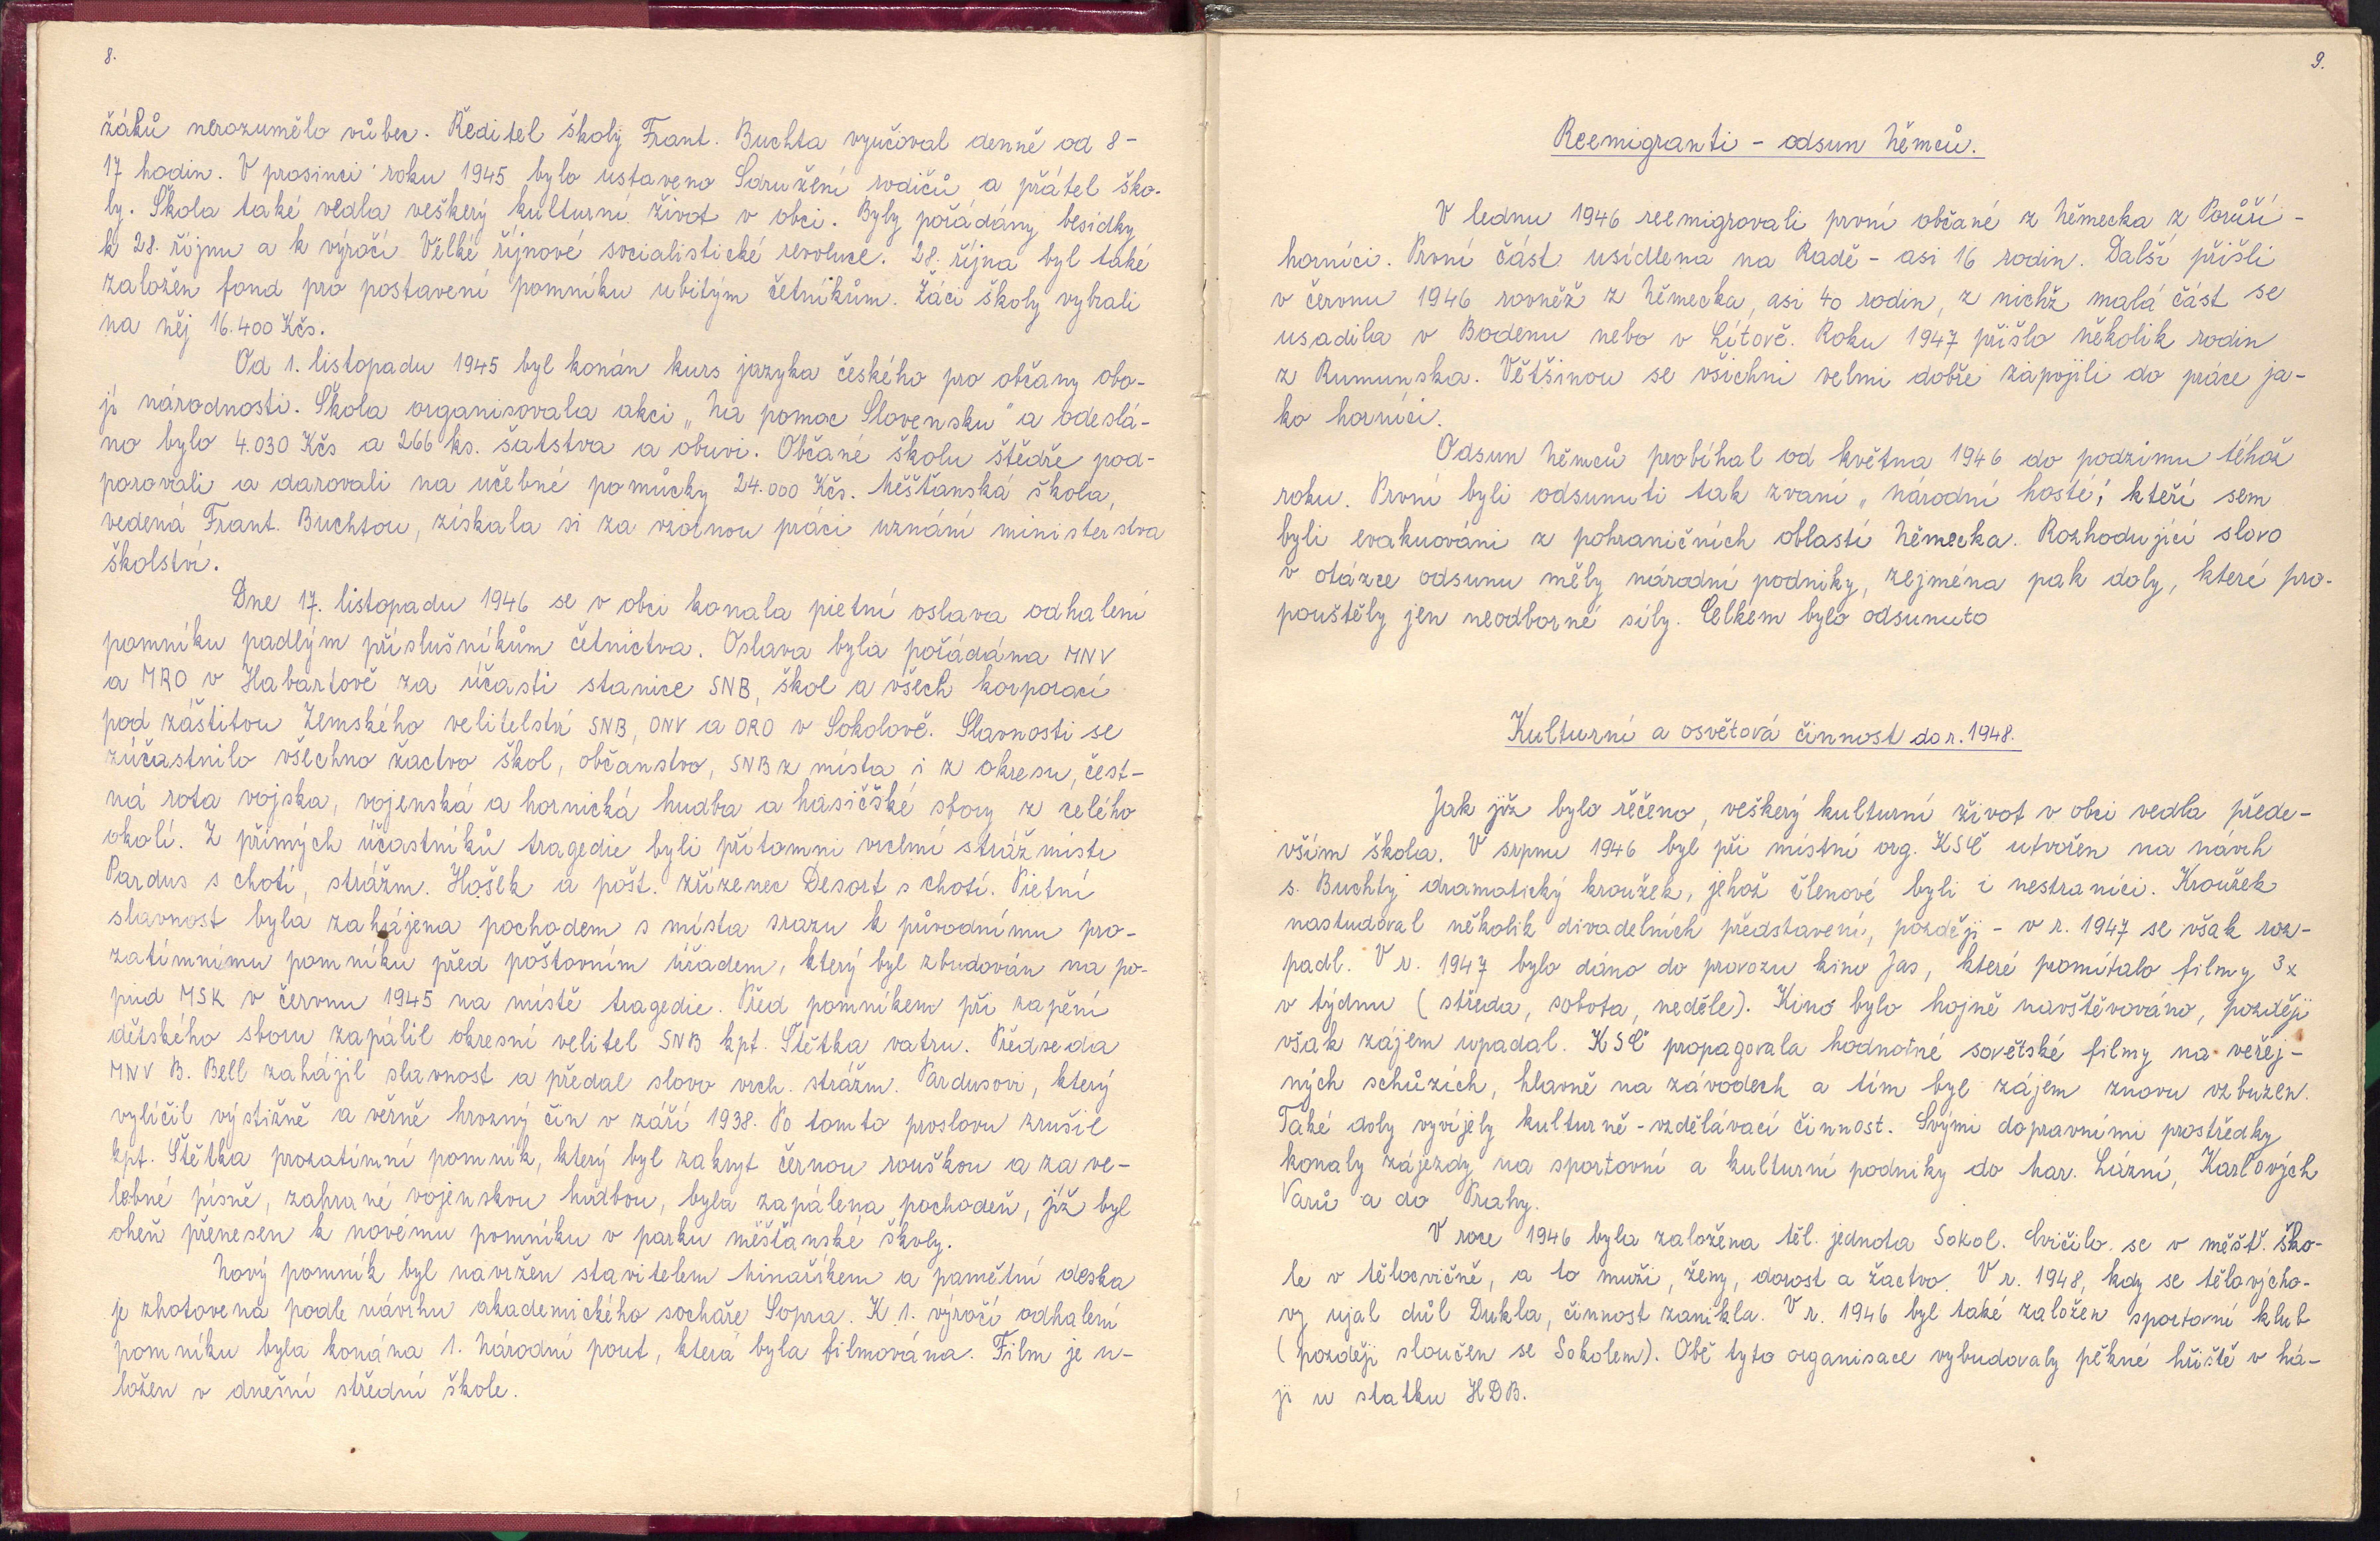 8.
žáků nerozumělo vůbec. Ředitel školy Frant. Buchta vyučoval denně od 8-
17 hodin. V prosinci roku 1945 bylo ustaveno Sdružení rodičů a přátel ško-
ly. Škola také vedla veškerý kulturní život v obci. Byly pořádány besídky
k 28. říjnu a k výročí Velké říjnové socialistické revoluce. 28. října byl také
založen fond pro postavení pomníku ubitým četníkům. Žáci školy vybrali
na něj 16.400 Kčs.
Od 1. listopadu 1945 byl konán kurs jazyka českého pro občany obo-
jí národnosti. Škola organisovala akci „Na pomoc Slovensku" a odeslá-
no bylo 4.030 Kčs a 266 ks. šatstva a obuvi. Občané školu štědře pod-
porovali a darovali na učebné pomůcky 24.000 Kčs. Měšťanská škola,
vedená Frant. Buchtou, získala si za vzornou práci uznání ministerstva
školství.
Dne 17. listopadu 1946 se v obci konala pietní oslava odhalení
pomníku padlým příslušníkům četnictva. Oslava byla pořádána MNV
a MRO v Habartově za účasti stanice SNB, škol a všech korporací
pod záštitou Zemského velitelství SNB, ONV a ORO v Sokolově. Slavnosti se
zúčastnilo všechno žactvo škol, občanstvo, SNB z místa i z okresu, čest-
ná rota vojska, vojenská a hornická hudba a hasičské sbory z celého
okolí. Z přímých účastníků tragedie byli přítomni vrchní strážmistr
Pardus s chotí, strážm. Hošek a pošt. zřízenec Desort s chotí. Pietní
slavnost byla zahájena pochodem s místa srazu k původnímu pro-
zatímnímu pomníku před poštovním úřadem, který byl zbudován na po-
pud MSK v červnu 1945 na místě tragedie. Před pomníkem při zapění
dětského sboru zapálil okresní velitel SNB kpt. Štětka vatru. Předseda
MNV B. Bell zahájil slavnost a předal slovo vrch. strážm. Pardusovi, který
vylíčil výstižně a věrně hrozný čin v září 1938. Po tomto proslovu zrušil
kpt. Štětka prozatímní pomník, který byl zakryt černou rouškou a za ve-
lebné písně, zahrané vojenskou hudbou, byla zapálena pochodeň, jíž byl
oheň přenesen k novému pomníku v parku měšťanské školy.
Nový pomník byl navržen stavitelem Minaříkem a pamětní deska
je zhotovena podle návrhu akademického sochaře Sopra. K 1. výročí odhalení
pomníku byla konána 1. Národní pout, která byla filmována. Film je u-
ložen v dnešní střední škole.
9.
Reemigranti - odsun Němců.
V lednu 1946 reemigrovali první občané z Německa z Porůří -
horníci. První část usídlena na Radě - asi 16 rodin. Další přišli
v červnu 1946 rovněž z Německa, asi 40 rodin, z nichž malá část se
usadila v Bodenu nebo v Lítově. Roku 1947 přišlo několik rodin
z Rumunska. Většinou se všichni velmi dobře zapojili do práce ja-
ko horníci.
Odsun Němců probíhal od května 1946 do podzimu téhož
roku. První byli odsunuti tak zvaní „národní hosté", kteří sem
byli evakuováni z pohraničních oblastí Německa. Rozhodující slovo
v otázce odsunu měly národní podniky, zejména pak doly, které pro-
pouštěly jen neodborné síly. Celkem bylo odsunuto
Kulturní a osvětová činnost do r. 1948.
Jak již bylo řečeno, veškerý kulturní život v obci vedla přede-
vším škola. V srpnu 1946 byl při místní org. KSČ utvořen na návrh
s. Buchty dramatický kroužek, jehož členové byli i nestraníci. Kroužek
nastudoval několik divadelních představení, později - v r. 1947 se však roz-
padl. V r. 1947 bylo dáno do provozu kino Jas, které promítalo filmy 3x
v týdnu (středa, sobota, neděle). Kino bylo hojně navštěvováno, později
však zájem upadal. KSČ propagovala hodnotné sovětské filmy na veřej-
ných schůzích, hlavně na závodech a tím byl zájem znovu vzbuzen.
Také doly vyvíjely kulturně-vzdělávací činnost. Svými dopravními prostředky
konaly zájezdy na sportovní a kulturní podniky do Mar. Lázní, Karlových
Varů a do Prahy.
V roce 1946 byla založena těl. jednota Sokol. Cvičilo se v měšť. ško-
le v tělocvičně, a to muži, ženy, dorost a žactvo. V r. 1948, kdy se tělovýcho-
vy ujal důl Dukla, činnost zanikla. V r. 1946 byl také založen sportovní klub
(později sloučen se Sokolem). Obě tyto organisace vybudovaly pěkné hřiště v há-
ji u statku HDB.